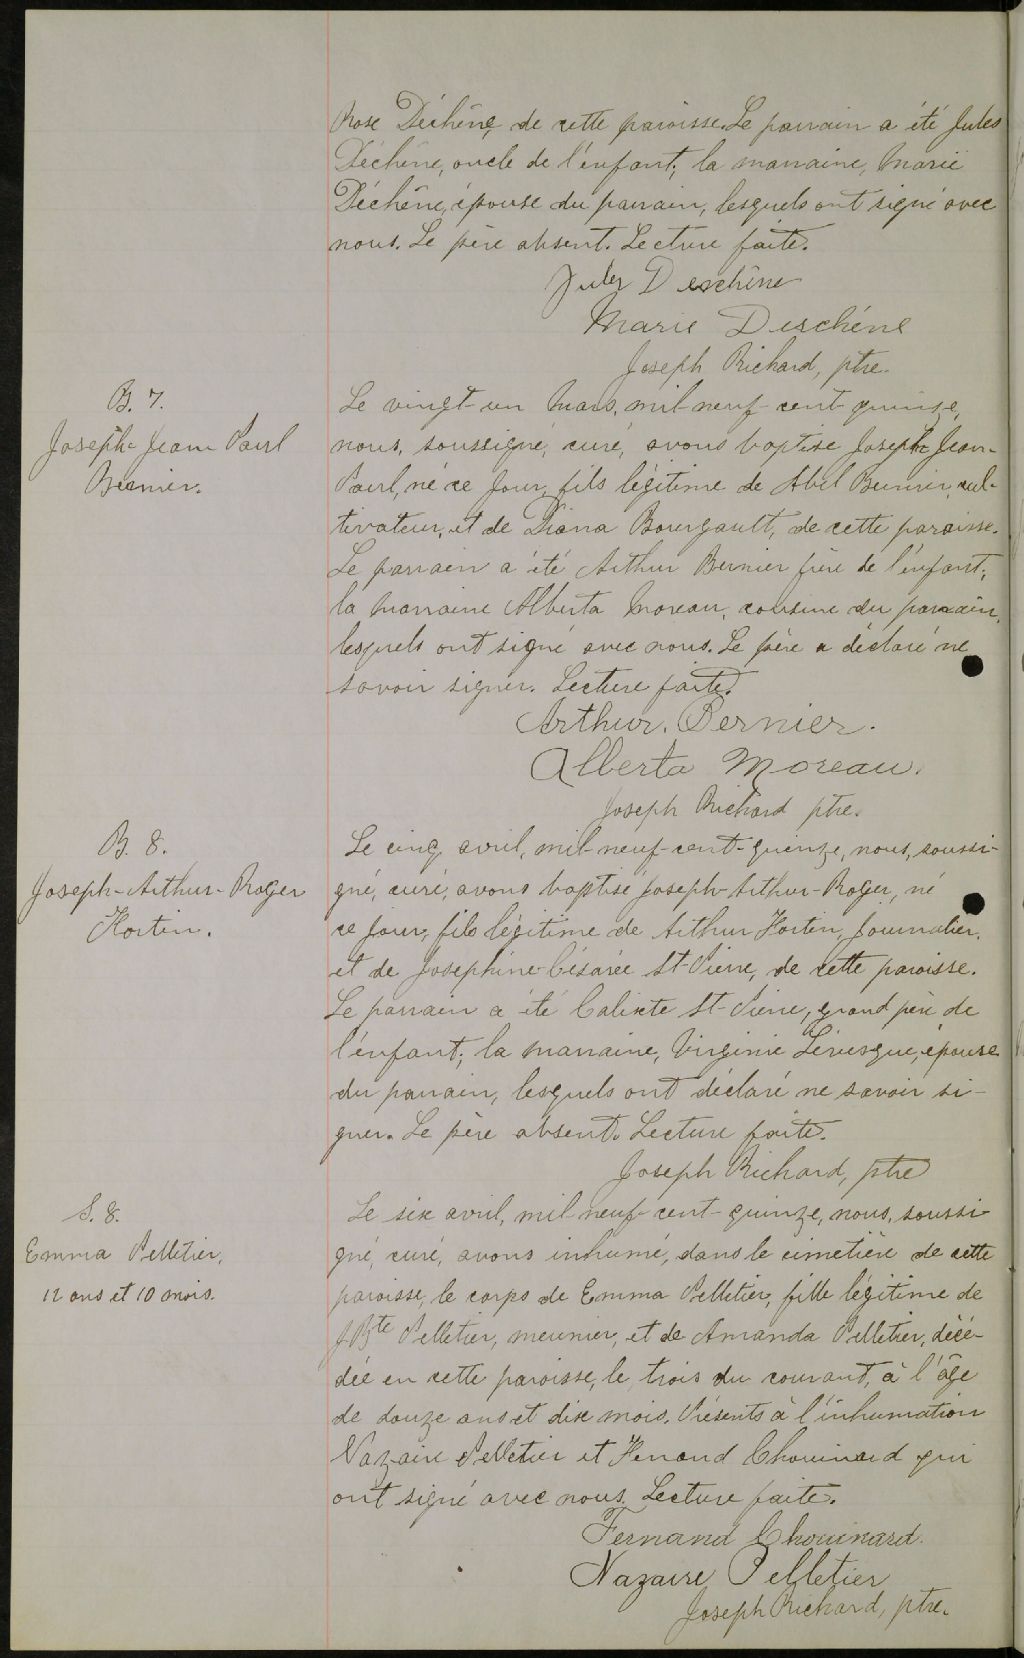 Rose Déchêne, de cette paroisse. Le parrain a été Jules
Déchêne, oncle de l'enfant; la marraine, Marie
Déchêne, épouse du parrain, lesquels ont signé avec
nous. Le père absent. Lecture faite.
Jules Deschêne
Marie Deschêne
Joseph Richard, ptre.
B. 7.
Joseph-Jean-Paul
Bernier.
Le vingt-un Mars, mil-neuf-cent-quinze,
nous, soussigné, curé, avons baptisé Joseph-Jean-
Paul, né ce jour, fils légitime de Abel Bernier, cul-
tivateur, et de Diana Bourgault, de cette paroisse.
Le parrain a été Arthur Bernier frère de l'enfant;
la marraine Alberta Moreau, cousine du parrain,
lesquels ont signé avec nous. Le père a déclaré ne
savoir signer. Lecture faite.
Arthur. Bernier.
Alberta Moreau.
Joseph Richard ptre.
B. 8.
Joseph-Arthur-Roger
Hortin.
Le cinq avril, mil-neuf-cent-quinze, nous, soussi-
gné, curé, avons baptisé Joseph-Arthur-Roger, né
ce jour, fils légitime de Arthur Hortin, journalier,
et de Josephine-Césarée St-Pierre, de cette paroisse.
Le parrain a été Calixte St-Pierre, grand père de
l'enfant; la marraine, Virginie Lévesque, épouse
du parrain, lesquels ont déclaré ne savoir si-
gner. Le père absent. Lecture faite.
Joseph Richard, ptre
S. 8.
Emma Pelletier,
12 ans et 10 mois.
Le six avril, mil-neuf-cent-quinze, nous, soussi-
gné, curé, avons inhumé, dans le cimetière de cette
paroisse, le corps de Emma Pelletier, fille légitime de
J Bte Pelletier, meunier, et de Amanda Pelletier, décé-
dée en cette paroisse, le trois du courant, à l'âge
de douze ans et dix mois. Présents à l'inhumation
Nazaire Pelletier et Fernand Chouinard qui
ont signé avec nous. Lecture faite.
Fernand Chouinard.
Nazaire Pelletier
Joseph Richard, ptre.